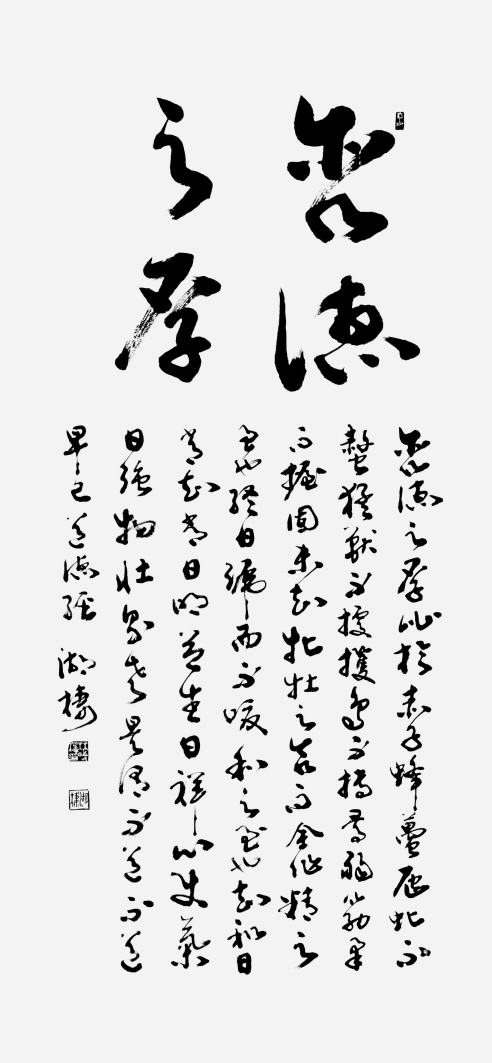 含德
之厚
含德之厚比於赤子蜂蠆虺蛇不
螫猛獸不據攫鳥不搏骨弱筋柔
而握固未知牝牡之合而全作精之
至也終日號而不嗄和之至也知和曰
常知常曰明益生曰祥心使氣
曰強物壯則老是謂不道不道
早已道德經 湖棲